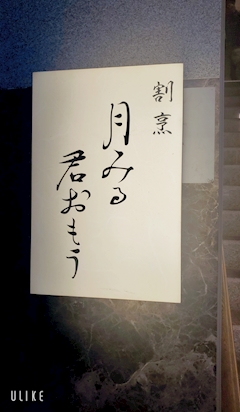 割烹
月みる
君おもう
ULIKE